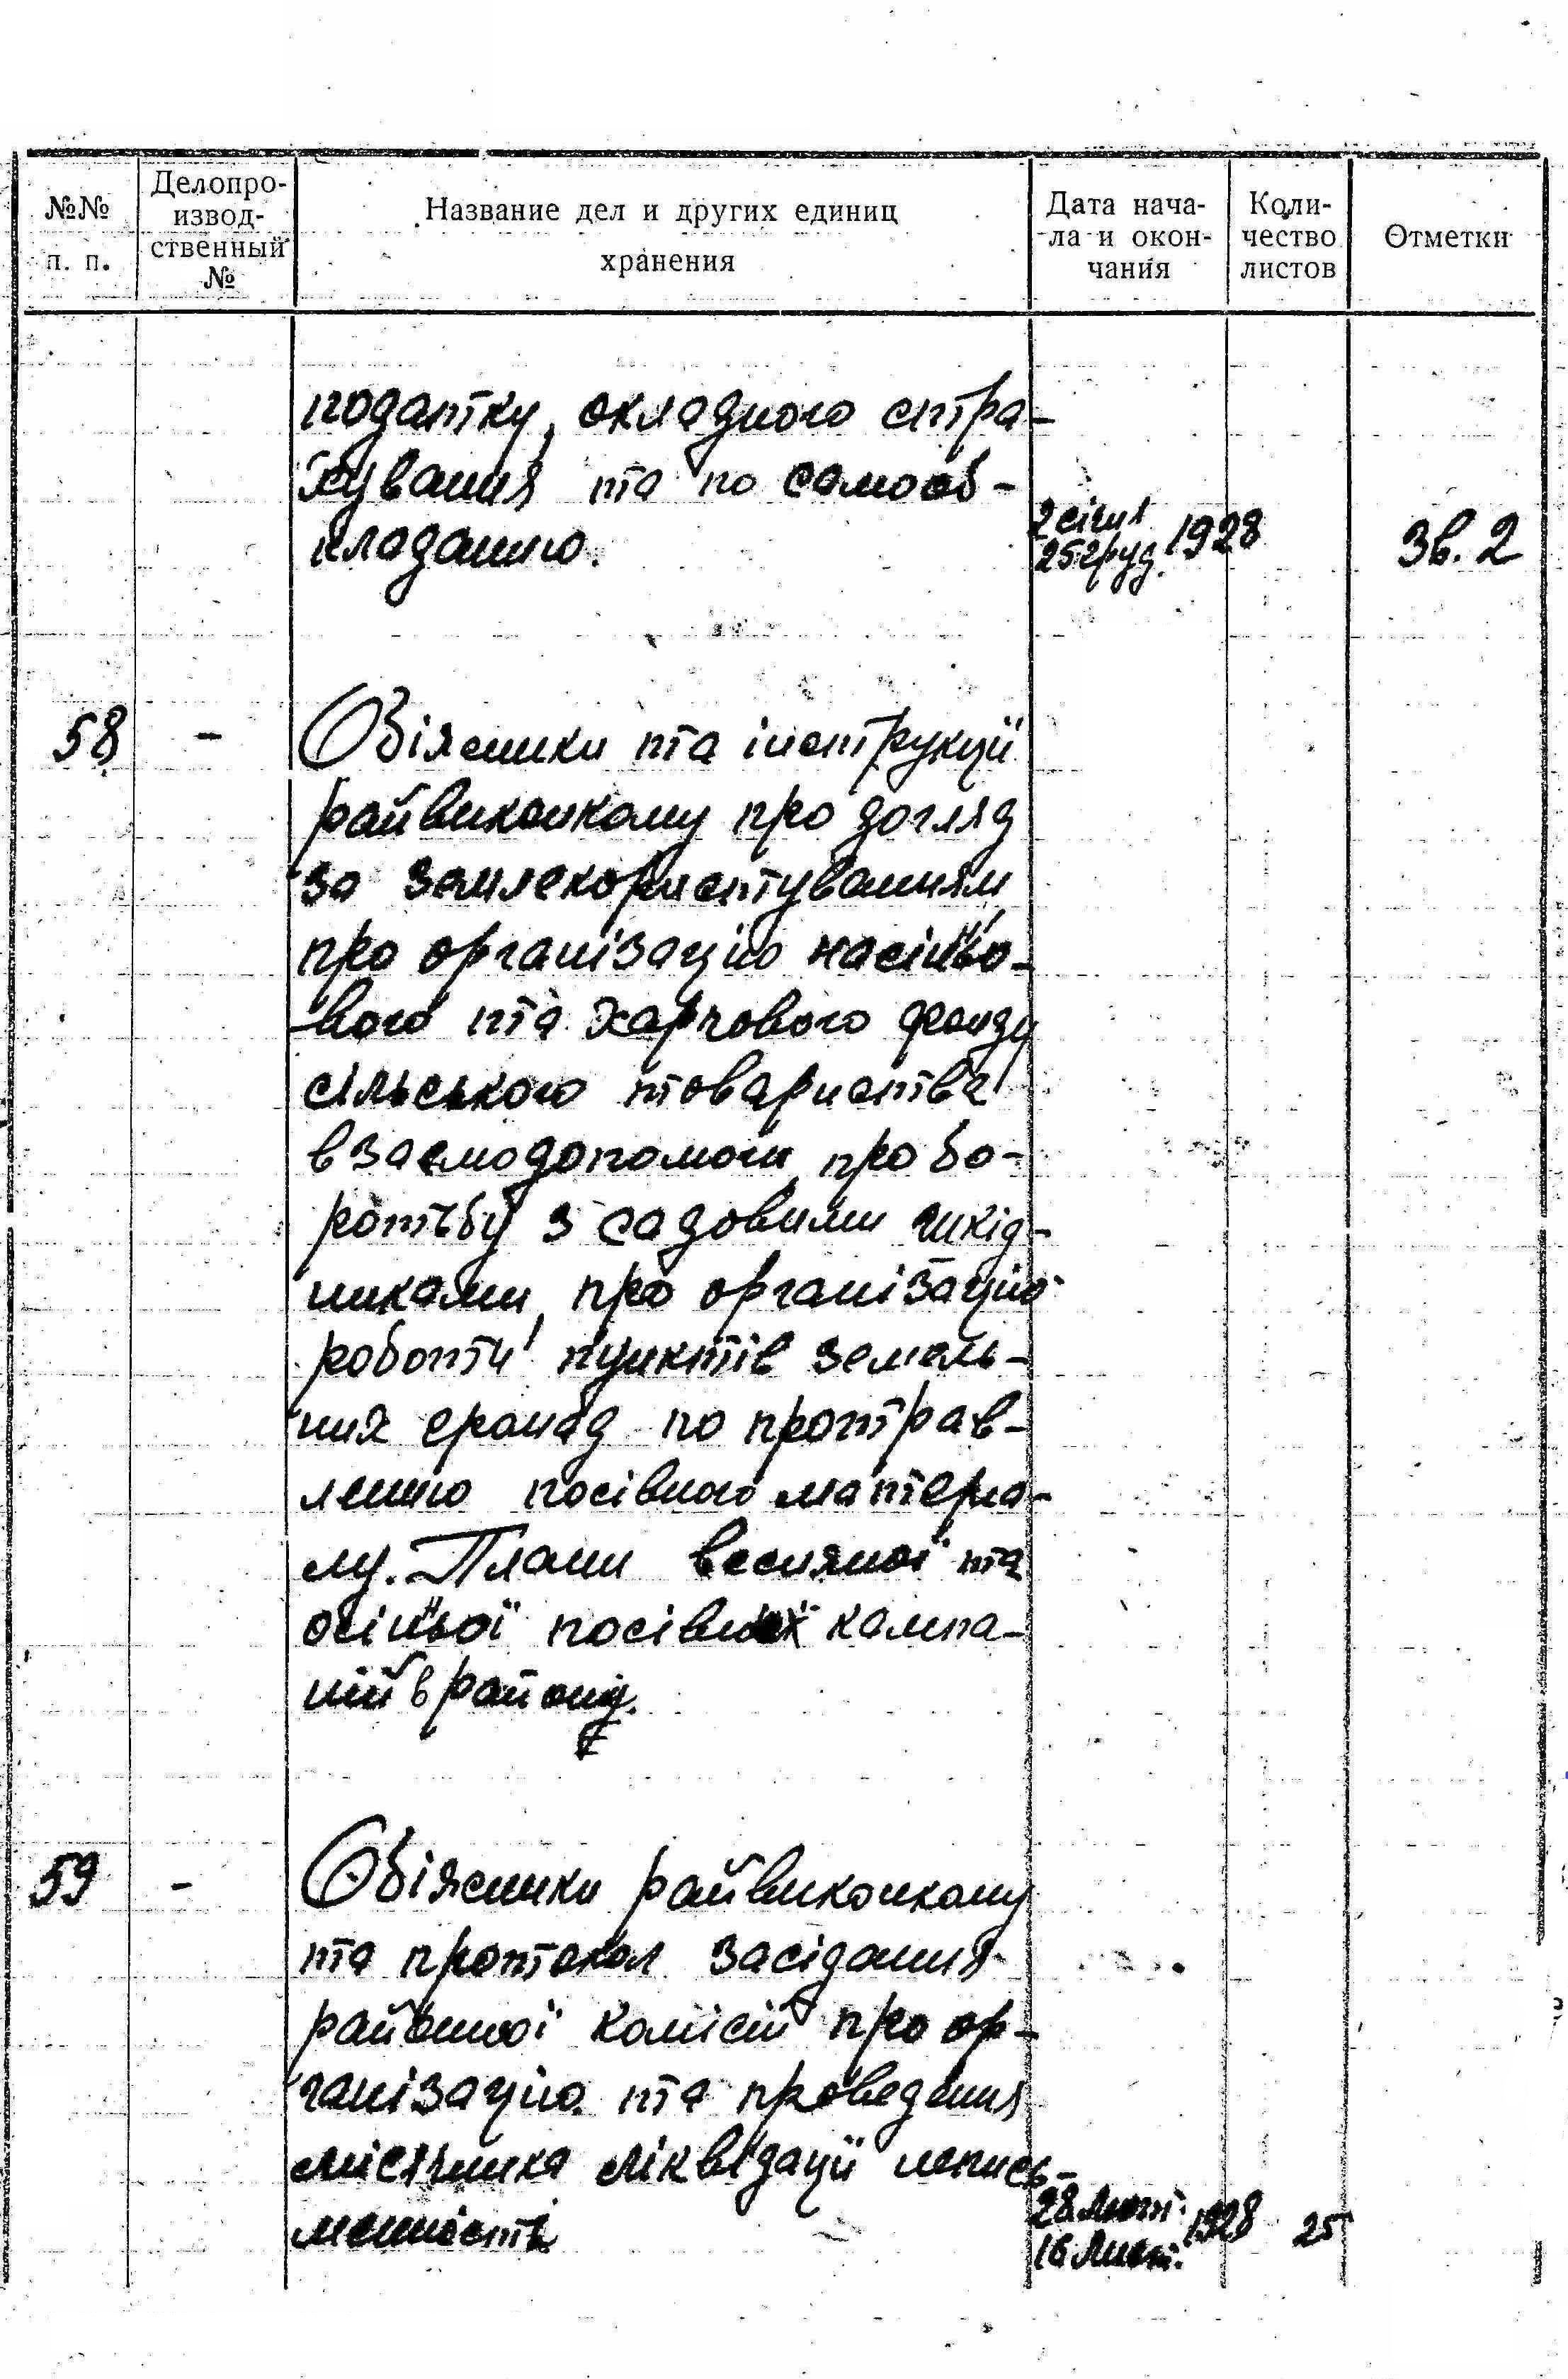 №№ п. п.
Делопро-
извод-
ственный
№
Название дел и других единиц
хранения
Дата нача-
ла и окон-
чания
Коли-
чество
листов
Отметки
податку, окладного стра-
хування та по самооб-
кладанню.
2 січня
25 груд. 1928
Зв. 2
58 -
Обіжники та інструкції
райвиконкому про догляд
за землекористуванням,
про організацію насіньо-
вого та харчового фонду
сільського товариства
взаємодопомоги, про бо-
ротьбу з садовими шкід-
никами, про організацію
роботи пунктів земель-
них громад по протрав-
ленню посівного матеріа-
лу. Плани весняної та
осіньої посівних кампа-
ній в районі.
59 -
Обіжники райвиконкому
та протокол засідання
районної комісії про ор-
ганізацію та проведення
місячника ліквідації непись-
менності
28 лют.
16 лист. 1928
25